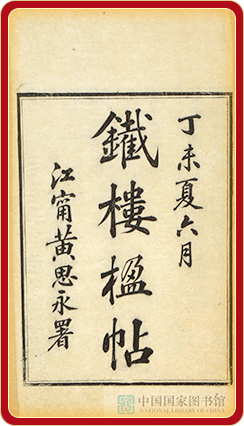 丁未夏六月
鐵樓楹帖
江甯黃思永署
中国国家图书馆
NATIONAL LIBRARY OF CHINA